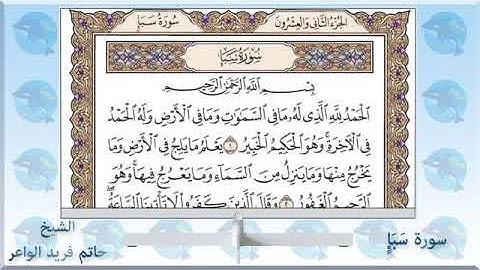 سُورَةُ سَبَإٍ الجُزءُ الثَّانِى وَالعِشرُونَ
سُورَةُ سَبَإٍ
بِسْمِ ٱللَّهِ ٱلرَّحْمَٰنِ ٱلرَّحِيمِ
ٱلْحَمْدُ لِلَّهِ ٱلَّذِى لَهُۥ مَا فِى ٱلسَّمَٰوَٰتِ وَمَا فِى ٱلْأَرْضِ وَلَهُ ٱلْحَمْدُ
فِى ٱلْءَاخِرَةِ ۚ وَهُوَ ٱلْحَكِيمُ ٱلْخَبِيرُ ١ يَعْلَمُ مَا يَلِجُ فِى ٱلْأَرْضِ وَمَا
يَخْرُجُ مِنْهَا وَمَا يَنزِلُ مِنَ ٱلسَّمَآءِ وَمَا يَعْرُجُ فِيهَا ۚ وَهُوَ
ٱلرَّحِيمُ ٱلْغَفُورُ ٢ وَقَالَ ٱلَّذِينَ كَفَرُوا۟ لَا تَأْتِينَا ٱلسَّاعَةُ ۖ
الشيخ
حاتم فريد الواعر
سورة سَبَإٍ